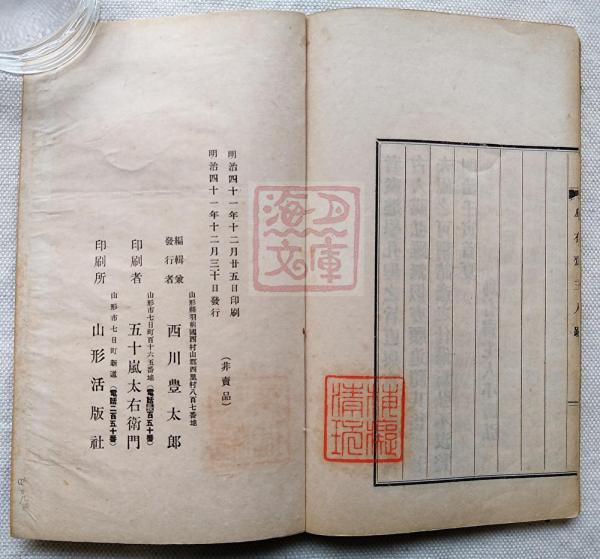 明治四十一年十二月廿五日印刷
明治四十一年十二月三十日發行
(非賣品)
山形縣羽前國西村山郡西里村八百七番地
編輯兼
發行者
西川豊太郎
山形市七日町百十六五番地
(電話長百五十番)
印刷者
五十嵐太右衛門
山形市七日町新道
(電話二百五十番)
印刷所
山形活版社
海月
文庫
清玩